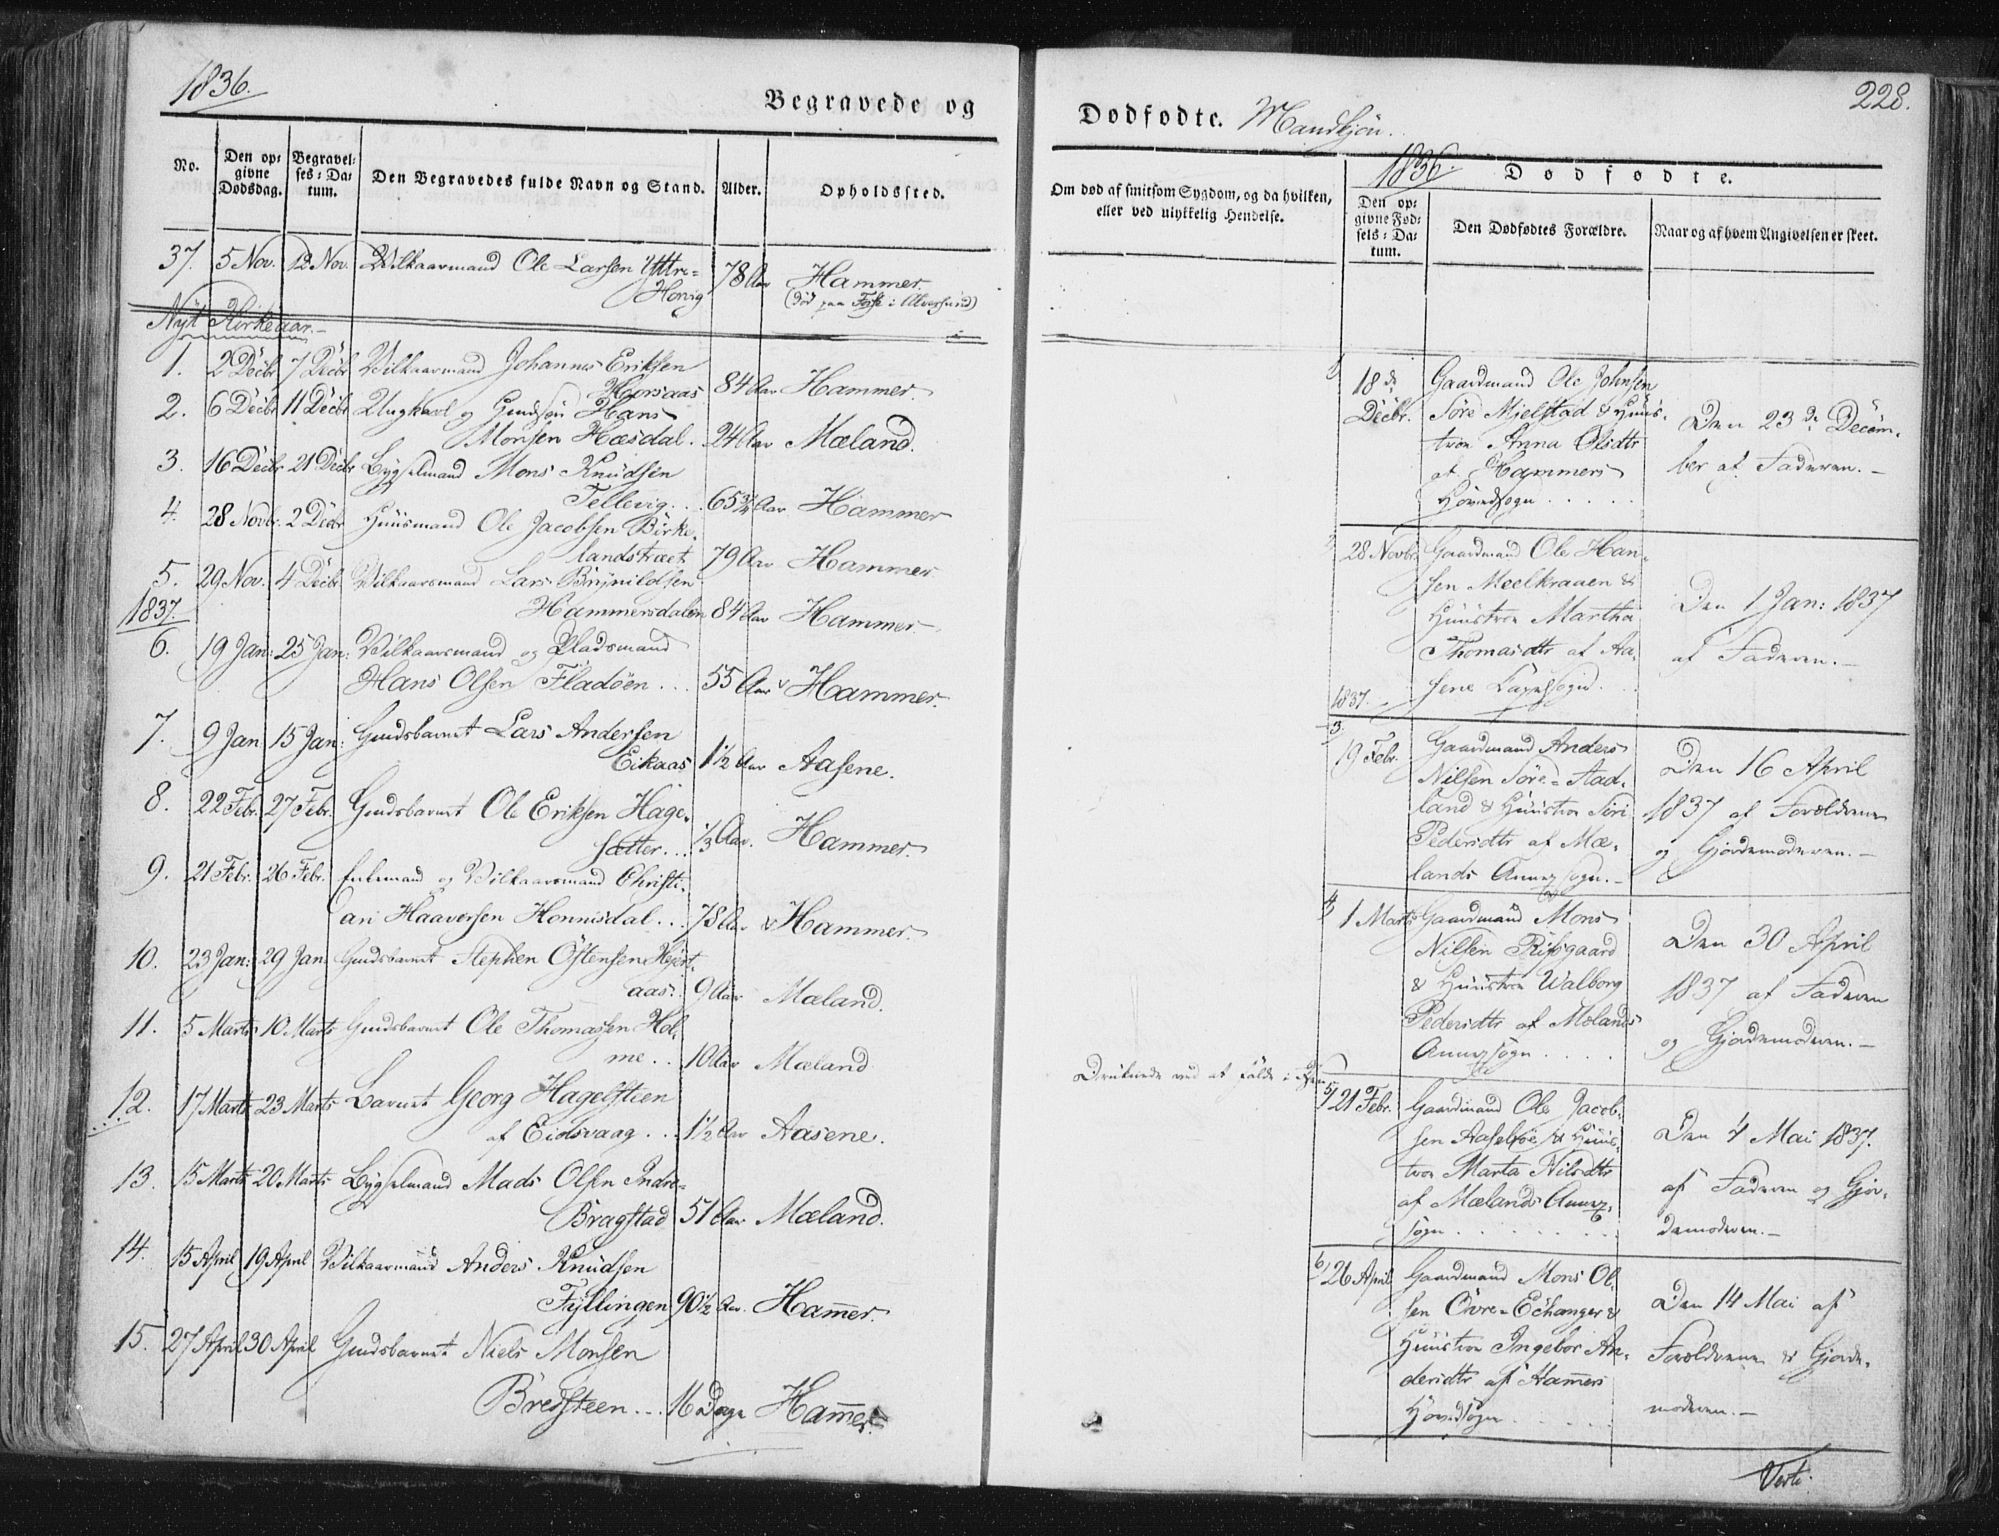 1836.
Begravede og
No.
Den op=
givne
Dødsdag.
Begravel=
ses=Da=
tum.
Den Begravedes fulde Navn og Stand.
Alder.
Opholdssted.
37. 5 Nov. 12 Nov. Vilkaarmand Ole Larsen Yttre=
Honig 78 Aar Hammer.
(død paa Fosse i Alversund)
Nyt Kirkeaar.
1. 2 Decbr 7 Decbr Vilkaarmand Johannes Eriksen
Horsaas 84 Aar Hammer.
2. 6 Decbr 11 Decbr Ungkarl og Gmdsøn Hans
Monsen Hæsdal. 24 Aar Mæland.
3. 16 Decbr 21 Decbr Bygselmand Mons Knudsen
Tellevig... 65¾ Aar Hammer
4. 28 Novbr. 2 Decbr Huusmand Ole Jacobsen Birke-
landstræet 79 Aar Hammer
5. 29 Nov. 4 Decbr. Vilkaarsmand Lars Brynildsen
Hammersdalen 84 Aar Hammer.
1837.
6. 19 Jan: 25 Jan: Vilkaarsmand og Pladsmand
Hans Olsen Fladøen... 55 Aar Hammer.
7. 9 Jan 15 Jan: Gmdsbarnet Lars Andersen
Eikaas 1½ Aar Aasene.
8. 22 Febr. 27 Febr. Gmdsbarnet Ole Eriksen Hage-
sætter... ⅓ Aar. Hammer.
9. 21 Febr. 26 Febr. Enkemand og Vilkaarsmand Christi-
an Haaversen Honnisdal... 78 Aar Hammer.
10. 23 Jan: 29 Jan: Gmdsbarnet Stephen Østensen Hjert-
aas.. 9 Aar Mæland.
11. 5 Marts 10 Marts Gmdsbarnet Ole Thomassen Hol-
me.. 10 Aar Mæland
12. 17 Marts 23 Marts Barnet Georg Hagelsteen
af Eidsvaag... 1½ Aar Aasene.
13. 15 Marts 20 Marts Bygselmand Mads Olsen Indre=
Bragstad 51 Aar Mæland.
14. 15 April 19 April Vilkaarmand Anders Knudsen
Fyllingen 90½ Aar. Hamer.
15. 27 April 30 April Gmdsbarnet Niels Monsen
Bredsteen... 16 Dage Hamer.
228.
Dødfødte. Mandkjøn.
Om død af smitsom Sygdom, og da hvilken,
eller ved ulykkelig Hendelse.
1836.
Dødfødte.
Den op=
givne Fød=
sels=Da=
tum.
Den Dødfødtes Forældre.
Naar og af hvem Angivelsen er skeet.
1
18de
Decbr.
Gaardmand Ole Johnsen
Søre Mjelstad & Huus-
troe Anna Olsdtr
af Hammers
Hovedsogn.....
Den 23de Decem-
ber af Faderen.-
2
28 Novbr. Gaardmand Ole Han-
sen Meelkraaen &
Huustroe Martha
Thomasdtr af Aa-
sene Capelsogn.
Den 1 Jan: 1837
af Faderen.-
1837.
3.
19 Febr. Gaardmand Anders
Nilsen Søre=Aad-
land & Huustroe Siri
Pedersdtr af Mæ-
lands Annexsogn.-
Den 16 April
1837 af Forældrene
og Gjordemoderen.-
4
1 Marts Gaardmand Mons
Nilsen Rissgaard
& Huustroe Walborg
Pedersdtr af Mælands
Annexsogn....
Den 30 April
1837 af Faderen
og Gjordemoderen.-
Druknede ved at falde i Søen
5
21 Febr. Gaardmand Ole Jacob-
sen Aaseltøe & Huus-
troe Marta Nilsdtr
af Mælands Annex-
sogn........
Den 4 Mai 1837.
af Faderen og Gjor-
demoderen.-
6
26 April Gaardmand Mons Ol-
sen Øvre-Echanger &
Huustroe Ingebor An-
dersdtr af Hamers
Hovedsogn.....
Den 14 Mai af
Forældrene & Gjorde-
moderen.-
Verte.